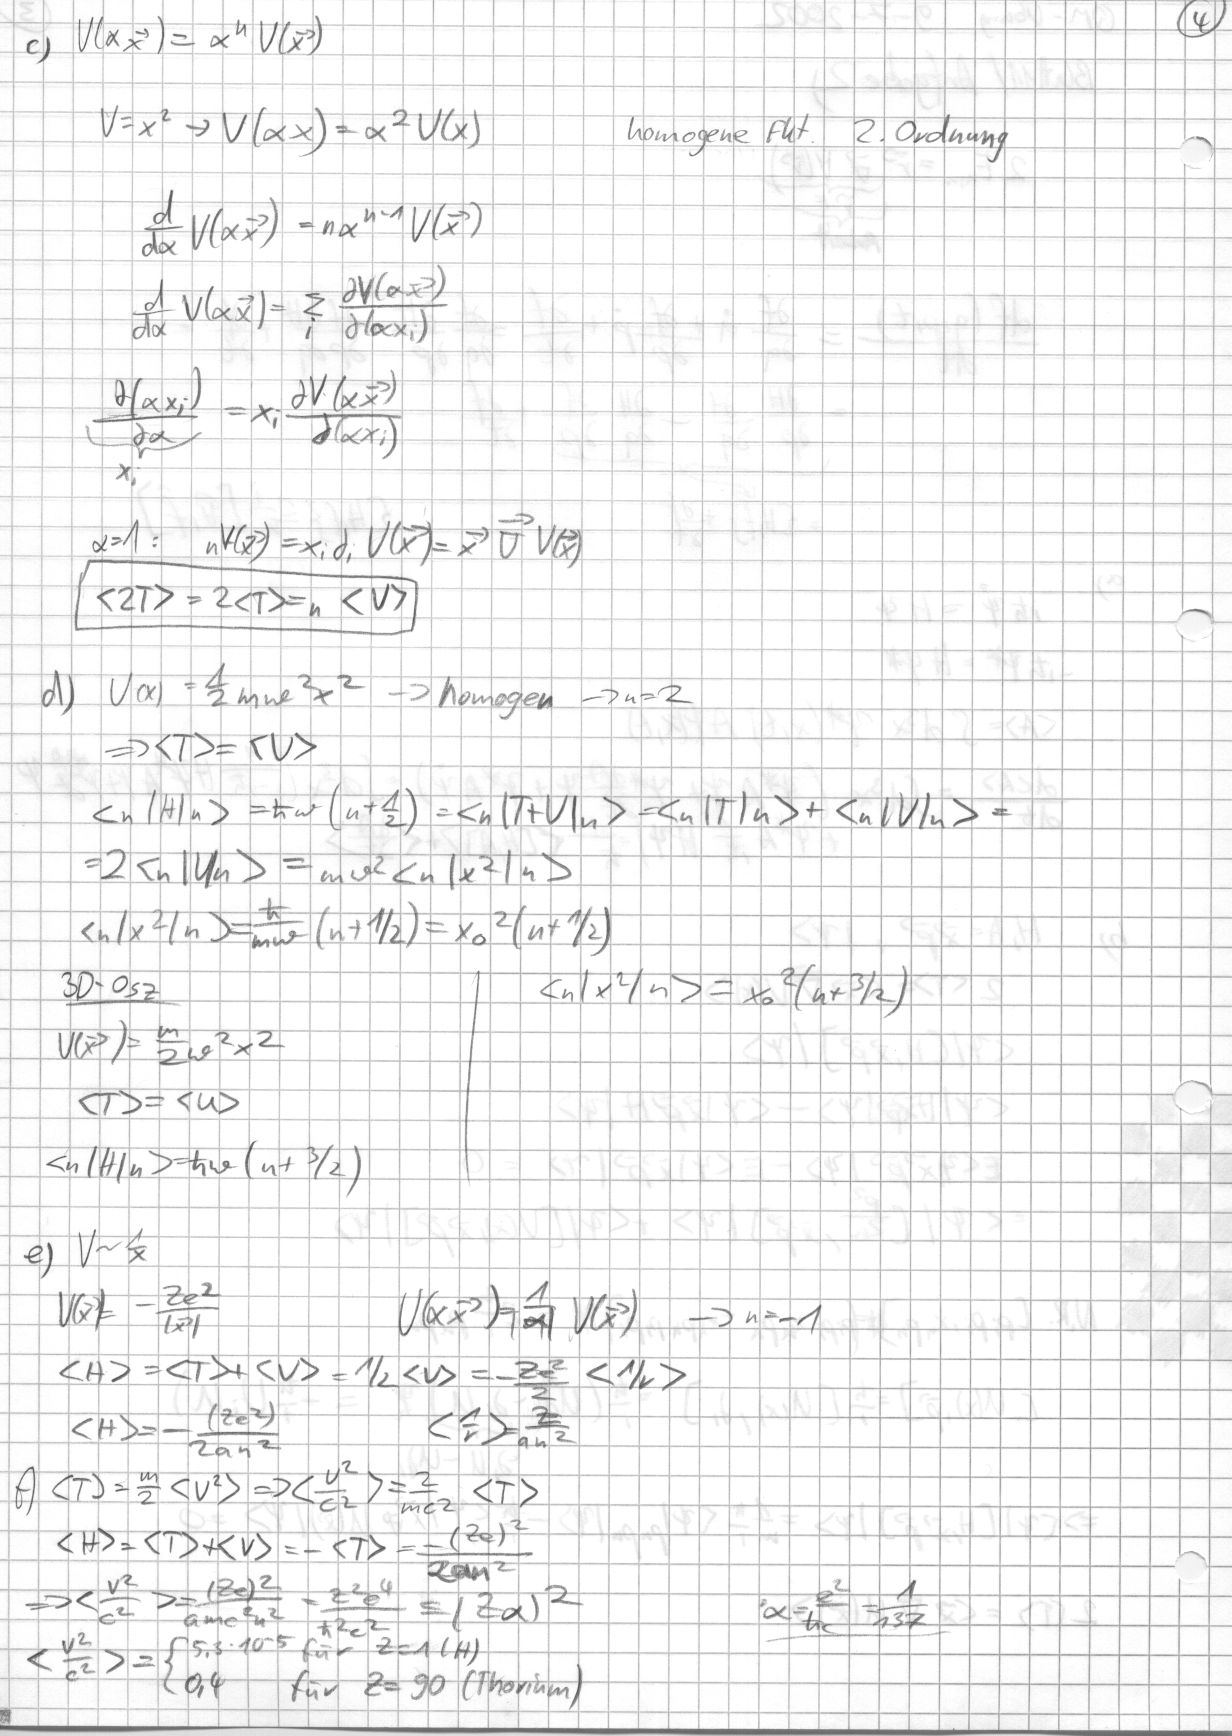 4
c) V(αx⃗) = αⁿ V(x⃗)
V=x² → V(αx) = α² V(x) homogene Fkt. 2. Ordnung
d/dα V(αx⃗) = nαⁿ⁻¹ V(x⃗)
d/dα V(αx⃗) = Σ_i ∂V(αx⃗)/∂(αx_i)
∂(αx_i)/∂α = x_i ∂V(αx⃗)/∂(αx_i)
x_i
α=1: nV(x⃗) = x_i ∂_i V(x⃗) = x⃗ ∇⃗ V(x⃗)
<2T> = 2<T> = n <V>
d) V(x) = 1/2 mω²x² → homogen → n=2
⇒ <T> = <V>
<n|H|n> = ħω (n+1/2) = <n|T+V|n> = <n|T|n> + <n|V|n> =
= 2 <n|V|n> = mω² <n|x²|n>
<n|x²|n> = ħ/mω (n+1/2) = x₀² (n+1/2)
3D-Osz <n|x²|n> = x₀² (n+3/2)
V(x⃗) = m/2 ω² x²
<T> = <U>
<n|H|n> = ħω (n+3/2)
e) V ~ 1/x
V(x⃗) = -Ze²/|x⃗| V(αx⃗) = 1/|α| V(x⃗) → n=-1
<H> = <T> + <V> = 1/2 <V> = -Ze²/2 <1/r>
<H> = -(Ze²)/2an² <1/r> = Z/an²
f) <T> = m/2 <V²> ⇒ <v²/c²> = 2/mc² <T>
<H> = <T> + <V> = -<T> = -(Ze)²/2an²
⇒ <v²/c²> = (Ze)²/amc²n² = Z²e⁴/ħ²c² = (Zα)² α = e²/ħc = 1/137
<v²/c²> = { 5,3·10⁻⁵ für Z=1 (H)
0,4 für Z=90 (Thorium)